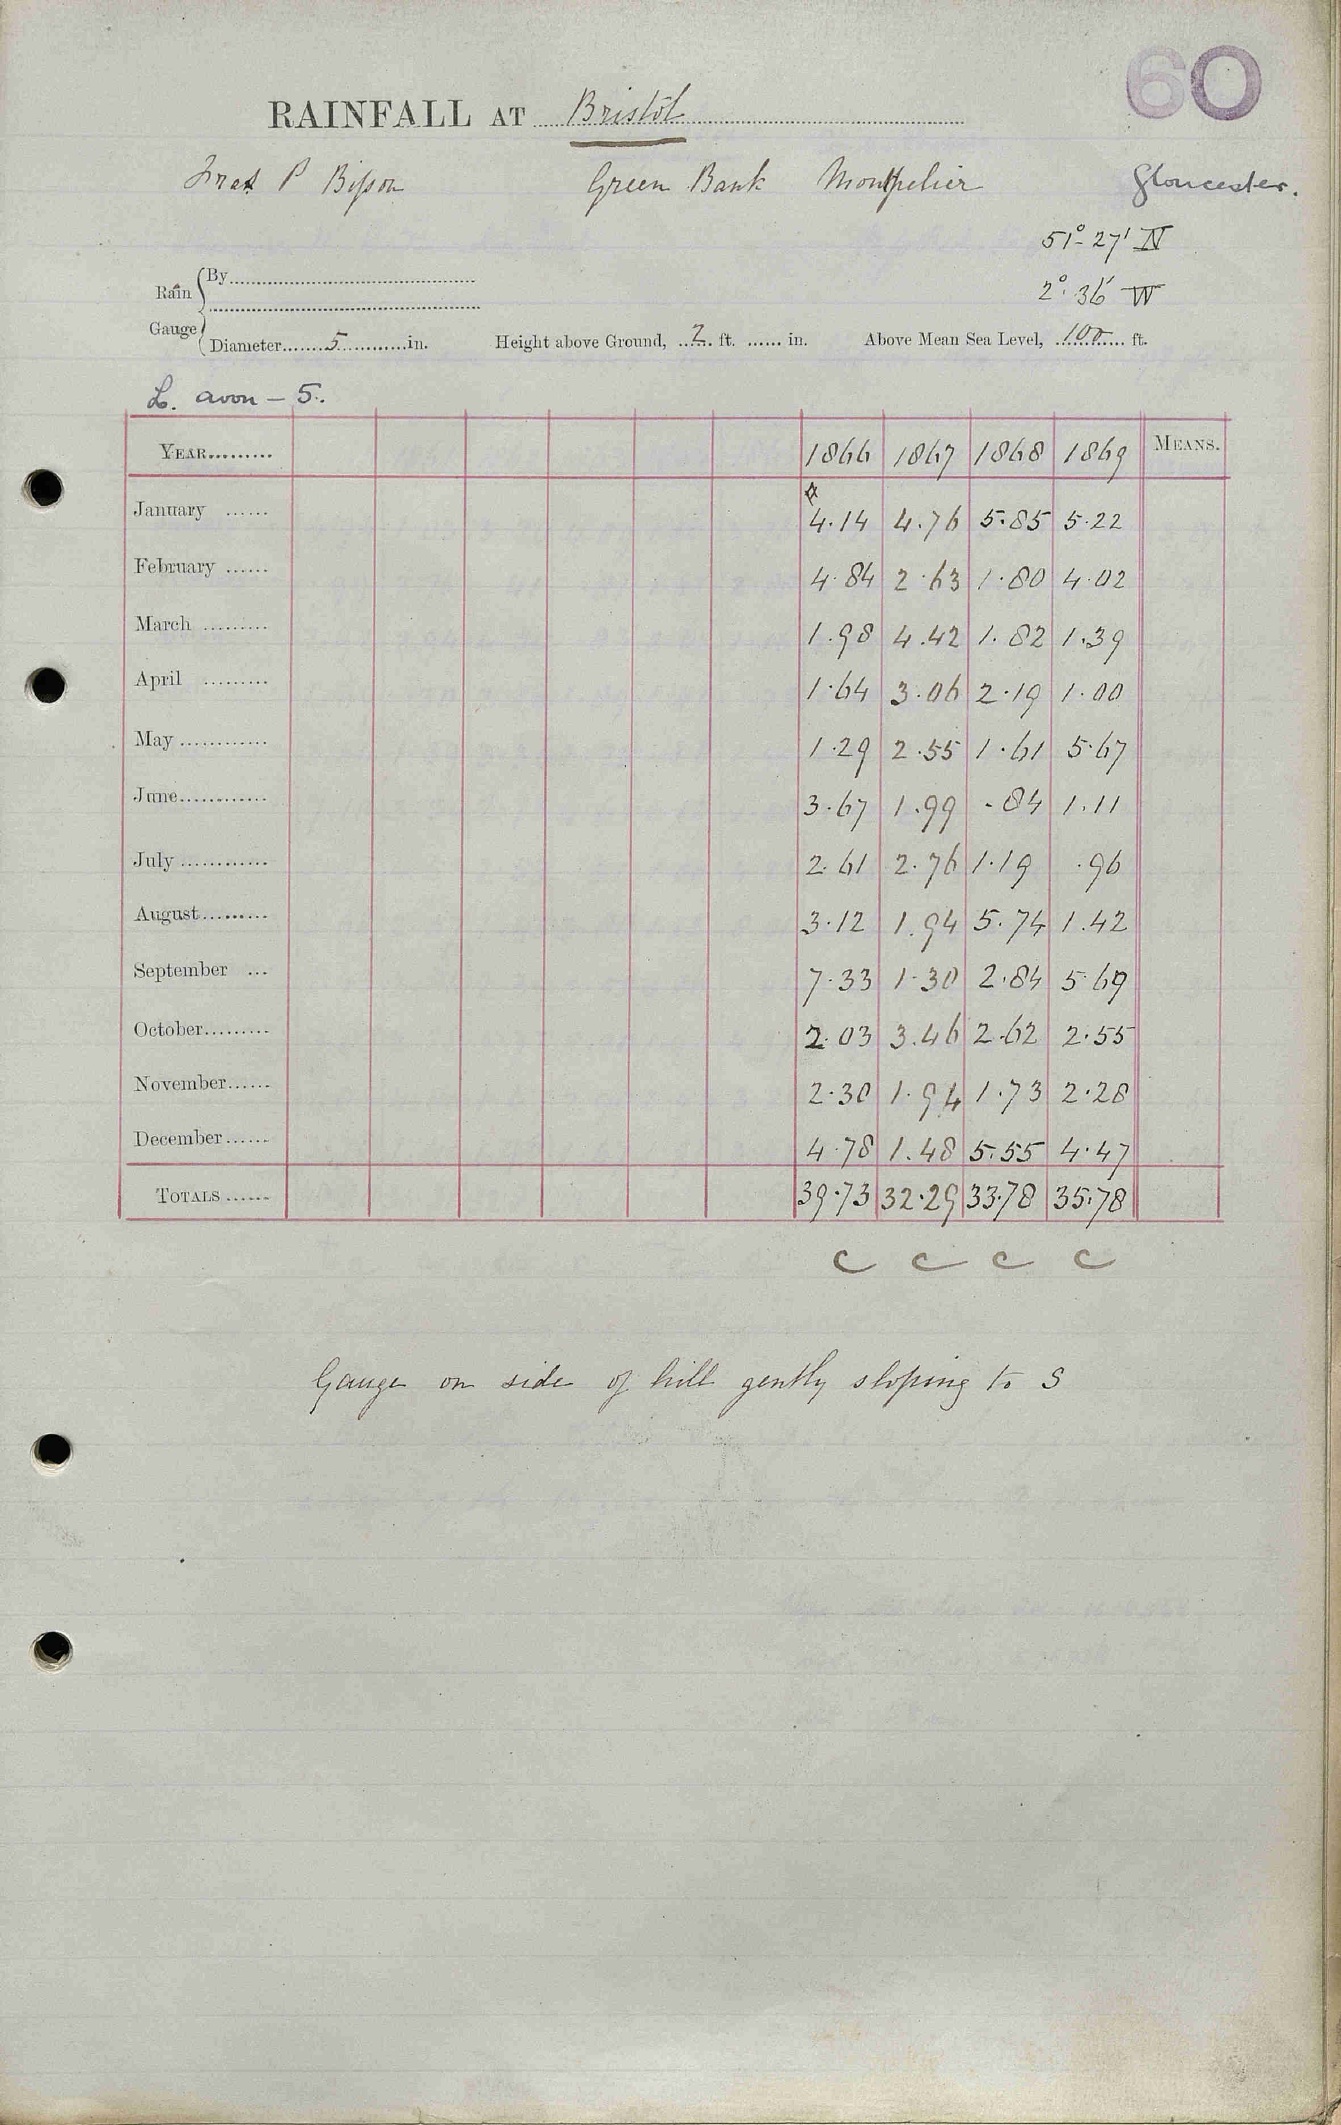 60
RAINFALL AT Bristol
P Bisson Green Bank Montpelier Gloucester.
51° 27' N
2° 36' W
Rain Gauge
By
Diameter 5 in. Height above Ground, 2 ft. in. Above Mean Sea Level, 100 ft.
L. avon – 5.
YEAR 1866 1867 1868 1869 MEANS.
January 4.14 4.76 5.85 5.22
February 4.84 2.63 1.80 4.02
March 1.98 4.42 1.82 1.39
April 1.64 3.06 2.19 1.00
May 1.29 2.55 1.61 5.67
June 3.67 1.99 .84 1.11
July 2.61 2.76 1.19 .96
August 3.12 1.94 5.74 1.42
September 7.33 1.30 2.84 5.69
October 2.03 3.46 2.62 2.55
November 2.30 1.94 1.73 2.28
December 4.78 1.48 5.55 4.47
TOTALS 39.73 32.29 33.78 35.78
C C C C
Gauge on side of hill gently sloping to S